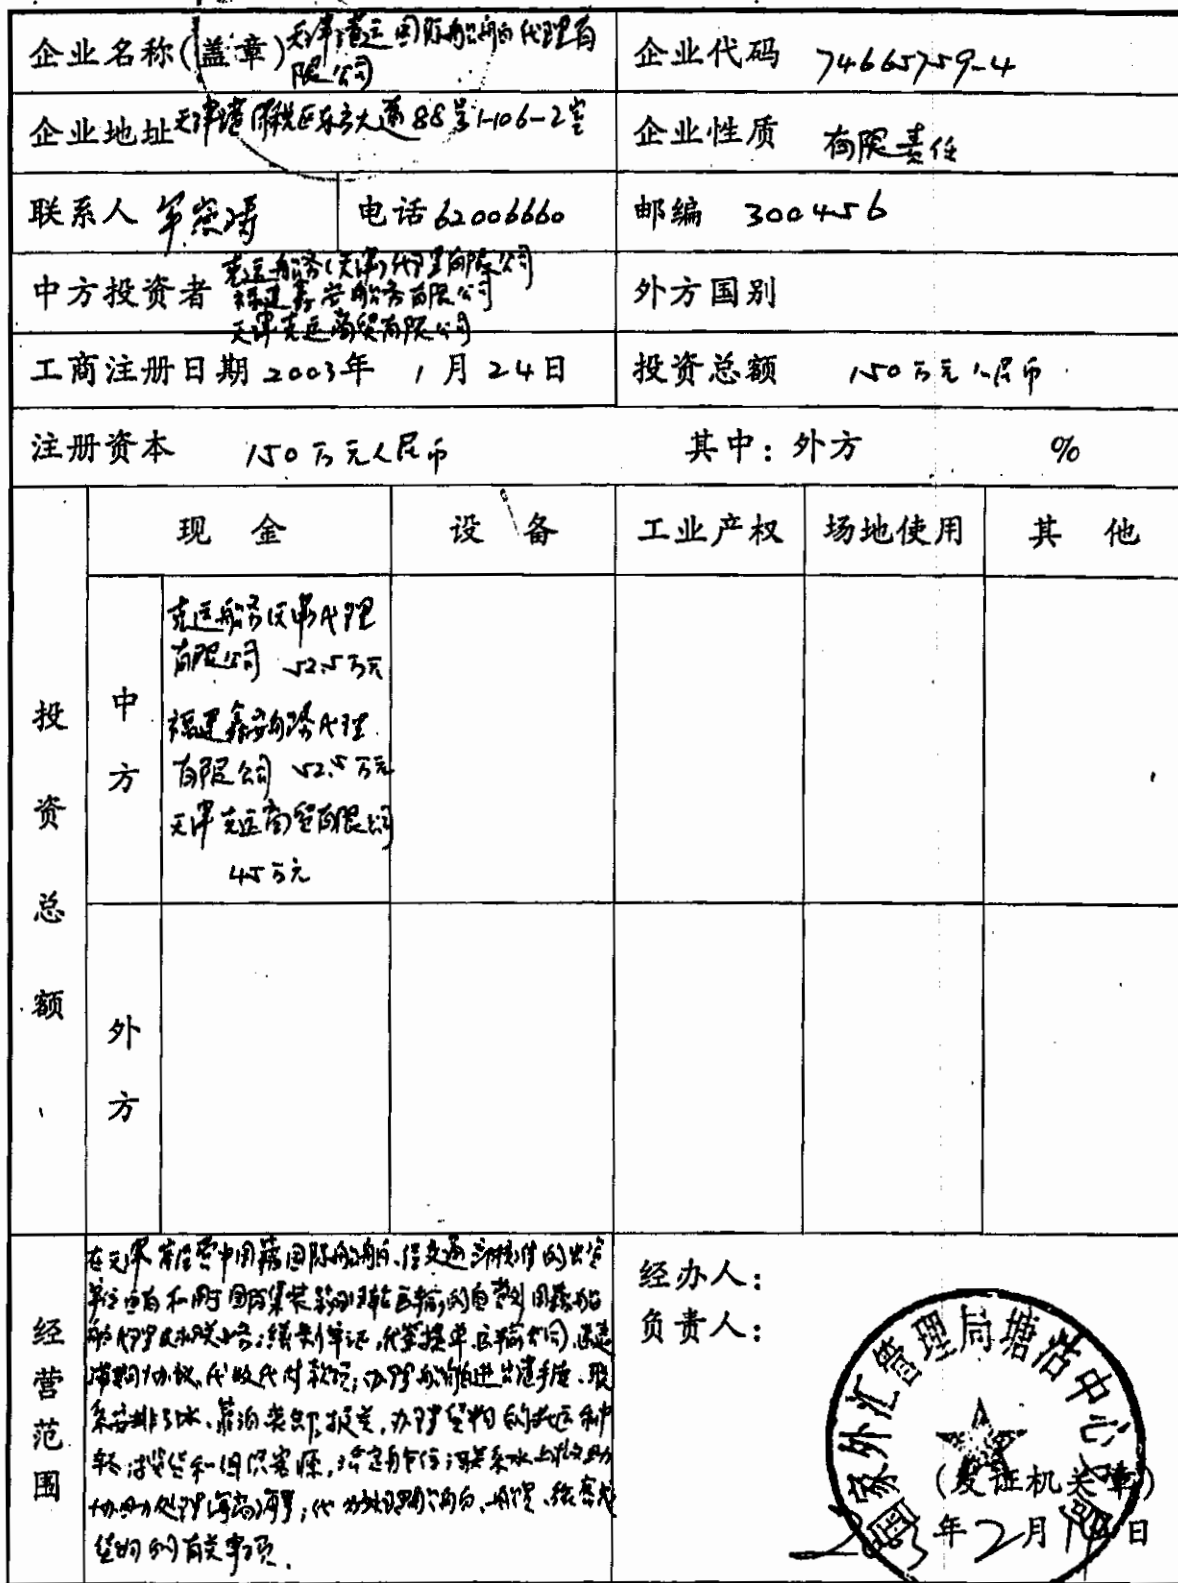 企业名称(盖章) 天津港运国际船舶代理有
限公司
企业代码 74665759-4
企业地址 天津港保税区东方大道88号1-106-2室
企业性质 有限责任
联系人
电话 62006660
邮编 300456
中方投资者 克运船务(天津)代理有限公司
福建鑫安船务有限公司
天津克运商贸有限公司
外方国别
工商注册日期 2003年 1月24日
投资总额 150万元人民币
注册资本 150万元人民币
其中:外方 %
现金 设备 工业产权 场地使用 其他
投资总额
中方
克运船务天津代理
有限公司 52.5万元
福建鑫安船务代理
有限公司 52.5万元
天津克运商贸有限公司
45万元
外方
经营范围
在天津 中国籍国际船舶、经交通部 的
和用于国际集装箱 运输的自 外国籍船
舶代理及 ;缮制单证,代签提单、运输合同、速遣
滞期协议,代收代付款项;办理船舶进出港手续,联
系安排引水、靠泊 、报关,办理货物的 和中
转, 和组织客源, 水上救助
协助处理海商海事;代 船舶、 、旅客或
货物的有关事项.
经办人:
负责人:
国家外汇管理局塘沽中心支局
(发证机关章)
2003年2月19日